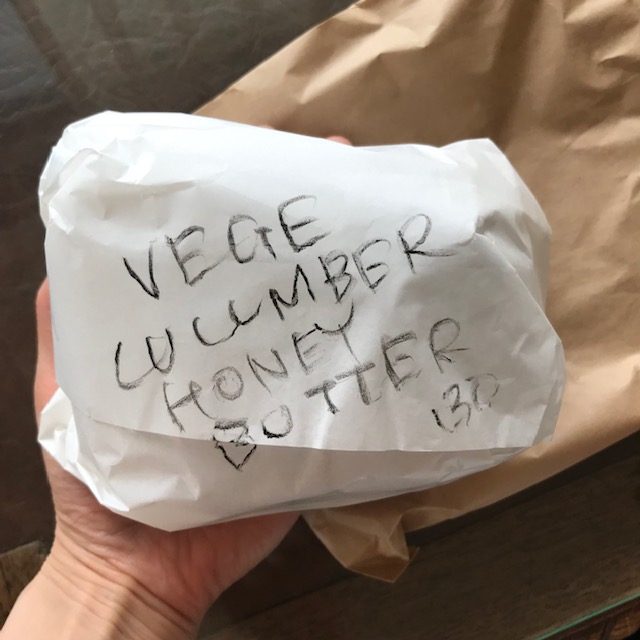 VEGE
CUCUMBER
HONEY
BUTTER